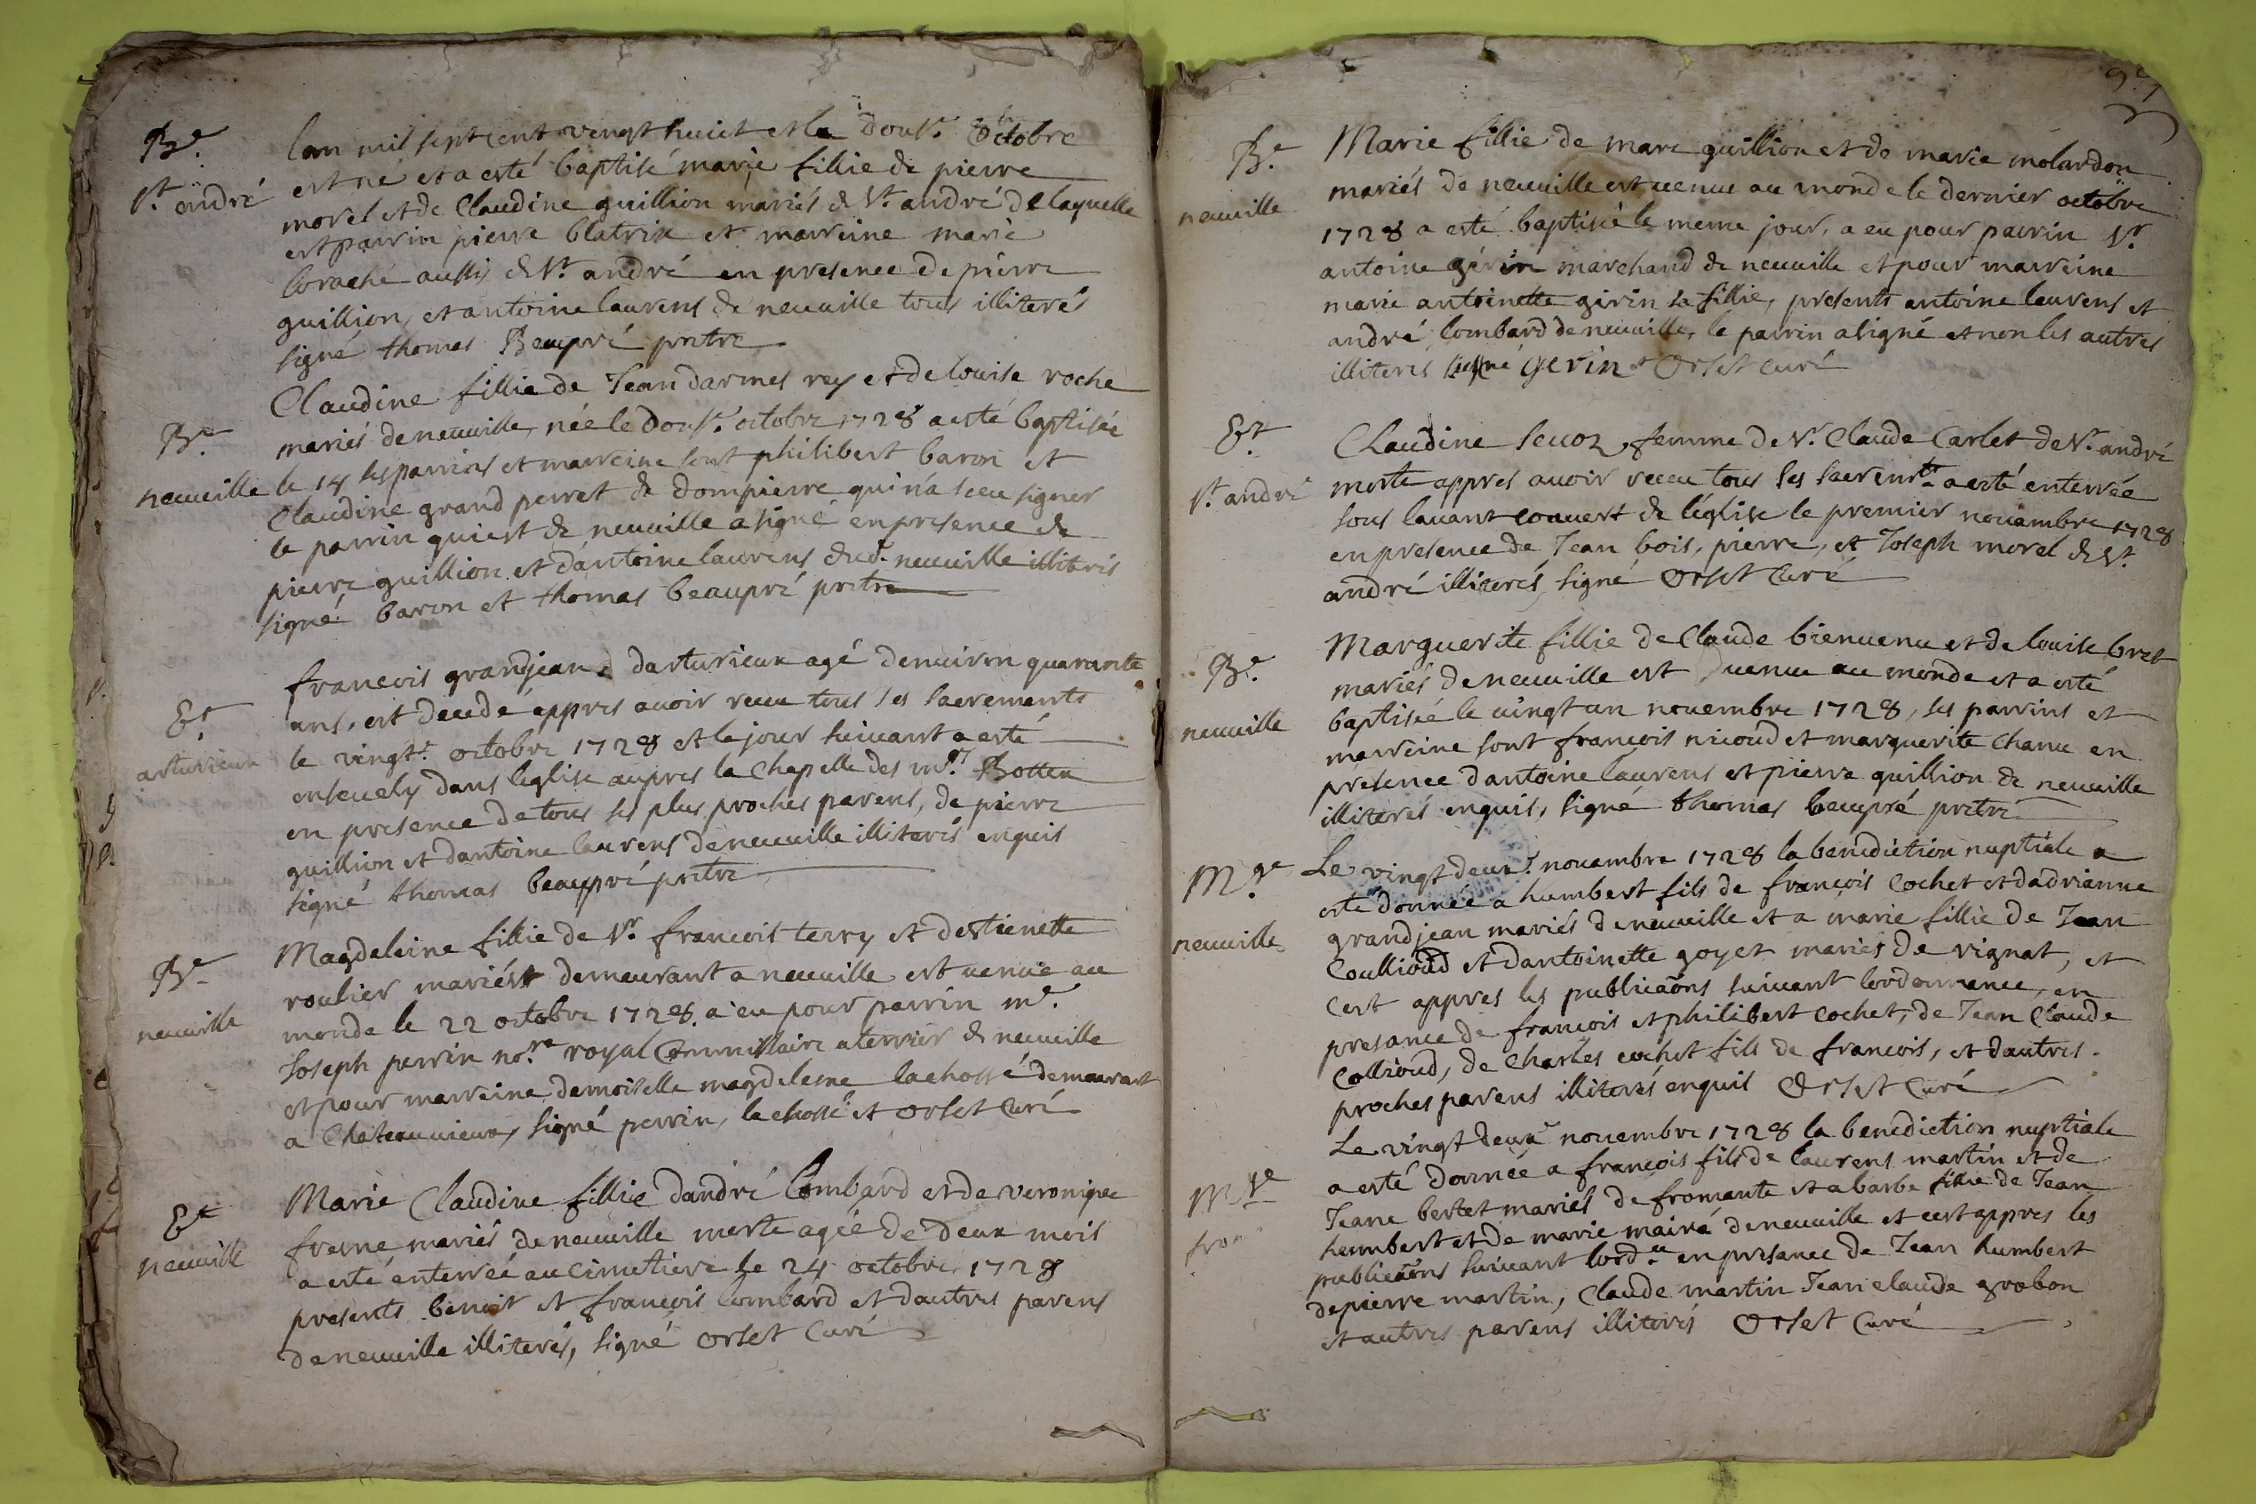 Be.
St. andré
lan mil sept cent vingt huict et le dous.e octobre
est né et a esté baptisé marie fillie de pierre
morel et de Claudine guillion mariés de St. andré de laquelle
est parrin pierre blatrix et marreine marie
borache aussis de St. andré en presence de pierre
guillion, et antoine laurens de neuuille tous illiterés
signé thomas Beaupré pretre
Be.
neuueille
Claudine fillie de Jean darmes rey et de louise roche
mariés de neuuille, née le dous.e octobre 1728 a esté baptisée
le 14 ses parrins et marreine sont philibert baron et
Claudine grand perret de dompierre qui n'a sceu signer
le parrin qui est de neuuille a signé en presence de
pierre guillion et d'antoine laurens dud. neuuille illiterés
signé baron et thomas beaupré pretre
Et.
arturieux
francois grandjean d'arturieux agé denuiron quarante
ans, est decedé appres auoir receu tous ses sacrements
le vingt.e octobre 1728 et le jour suiuant a esté
enseuely dans l'eglise aupres la Chapelle des mrs.
en presence de tous ses plus proches parens, de pierre
guillion et dantoine laurens de neuuille illiterés enquis
signé thomas beaupré pretre
Be.
neuuille
Magdeleine fillie de Sr. francois terry et destienette
roulier mariés demeurant a neuuille est venue au
monde le 22 octobre 1728. a eu pour parrin me.
Joseph perrin no.re royal Commissaire a terrier de neuuille
et pour marreine demoiselle magdeleine lachossé demeurant
a Chateauuieux, signé perrin, lachossé et orset Curé
Et
neuuille
Marie Claudine fillie dandré lombard et de veronique
fresne mariés de neuuille morte agée de deux mois
a esté enterrée au Cimetiere le 24 octobre 1728
presents benoit et françois lombard et dautres parens
de neuuille illiterés, signé orset Curé
Be.
neuuille
Marie fillie de marc guillion et de marie molardon
mariés de neuuille est uenue au monde le dernier octobre
1728 a esté baptisée le meme jour, a eu pour parrin Sr.
antoine gerin marchand de neuuille et pour marreine
marie antoinette girin sa fillie, presents antoine laurens et
andré lombard de neuuille, le parrin a signé et non les autres
illiterés signé gerin et Orset curé
Et.
St. andré
Claudine femme de Sr. Claude Carlet de St. andré
morte appres auoir receu tous ses sacrem.ts a esté enterrée
sous lauant couuert de l'église le premier nouambre 1728
en presence de Jean bois, pierre, et Joseph morel de St.
andré illiterés, signé Orset Curé
Be.
neuuille
Marguerite fillie de Claude bienuenu et de louise bret
mariés de neuuille est uenue au monde et a esté
baptisée le uingt un nouembre 1728, ses parrins et
marreine sont françois nicoud et marguerite Chanu en
presence d'antoine laurens et pierre guillion de neuuille
illiterés enquis, signé thomas beaupré pretre
M.ge
neuuille
Le vingt deux.e nouambre 1728 la benediction nuptiale a
esté donnée a humbert fils de françois Cochet et dadrianne
grandjean mariés de neuuille et a marie fillie de Jean
Coullioud et dantoinette goyet mariés de vignat, et
cest appres les publicaons suiuant lordonnance, en
presance de françois et philibert Cochet, de Jean Claude
Collioud, de Charles cochet fils de francois, et dautres
proches parens illiterés enquis Orset Curé
M.ge
fron
Le vingt deux.e nouembre 1728 la benediction nuptiale
a esté donnée a françois fils de laurens martin et de
Jeane bertet mariés de fromente et a barbe fillie de Jean
humbert et de marie mairé de neuuille et cest appres les
publicaons suiuant lord.ce en presance de Jean humbert
de pierre martin, Claude martin Jean claude grobon
et autres parens illiterés Orset Curé